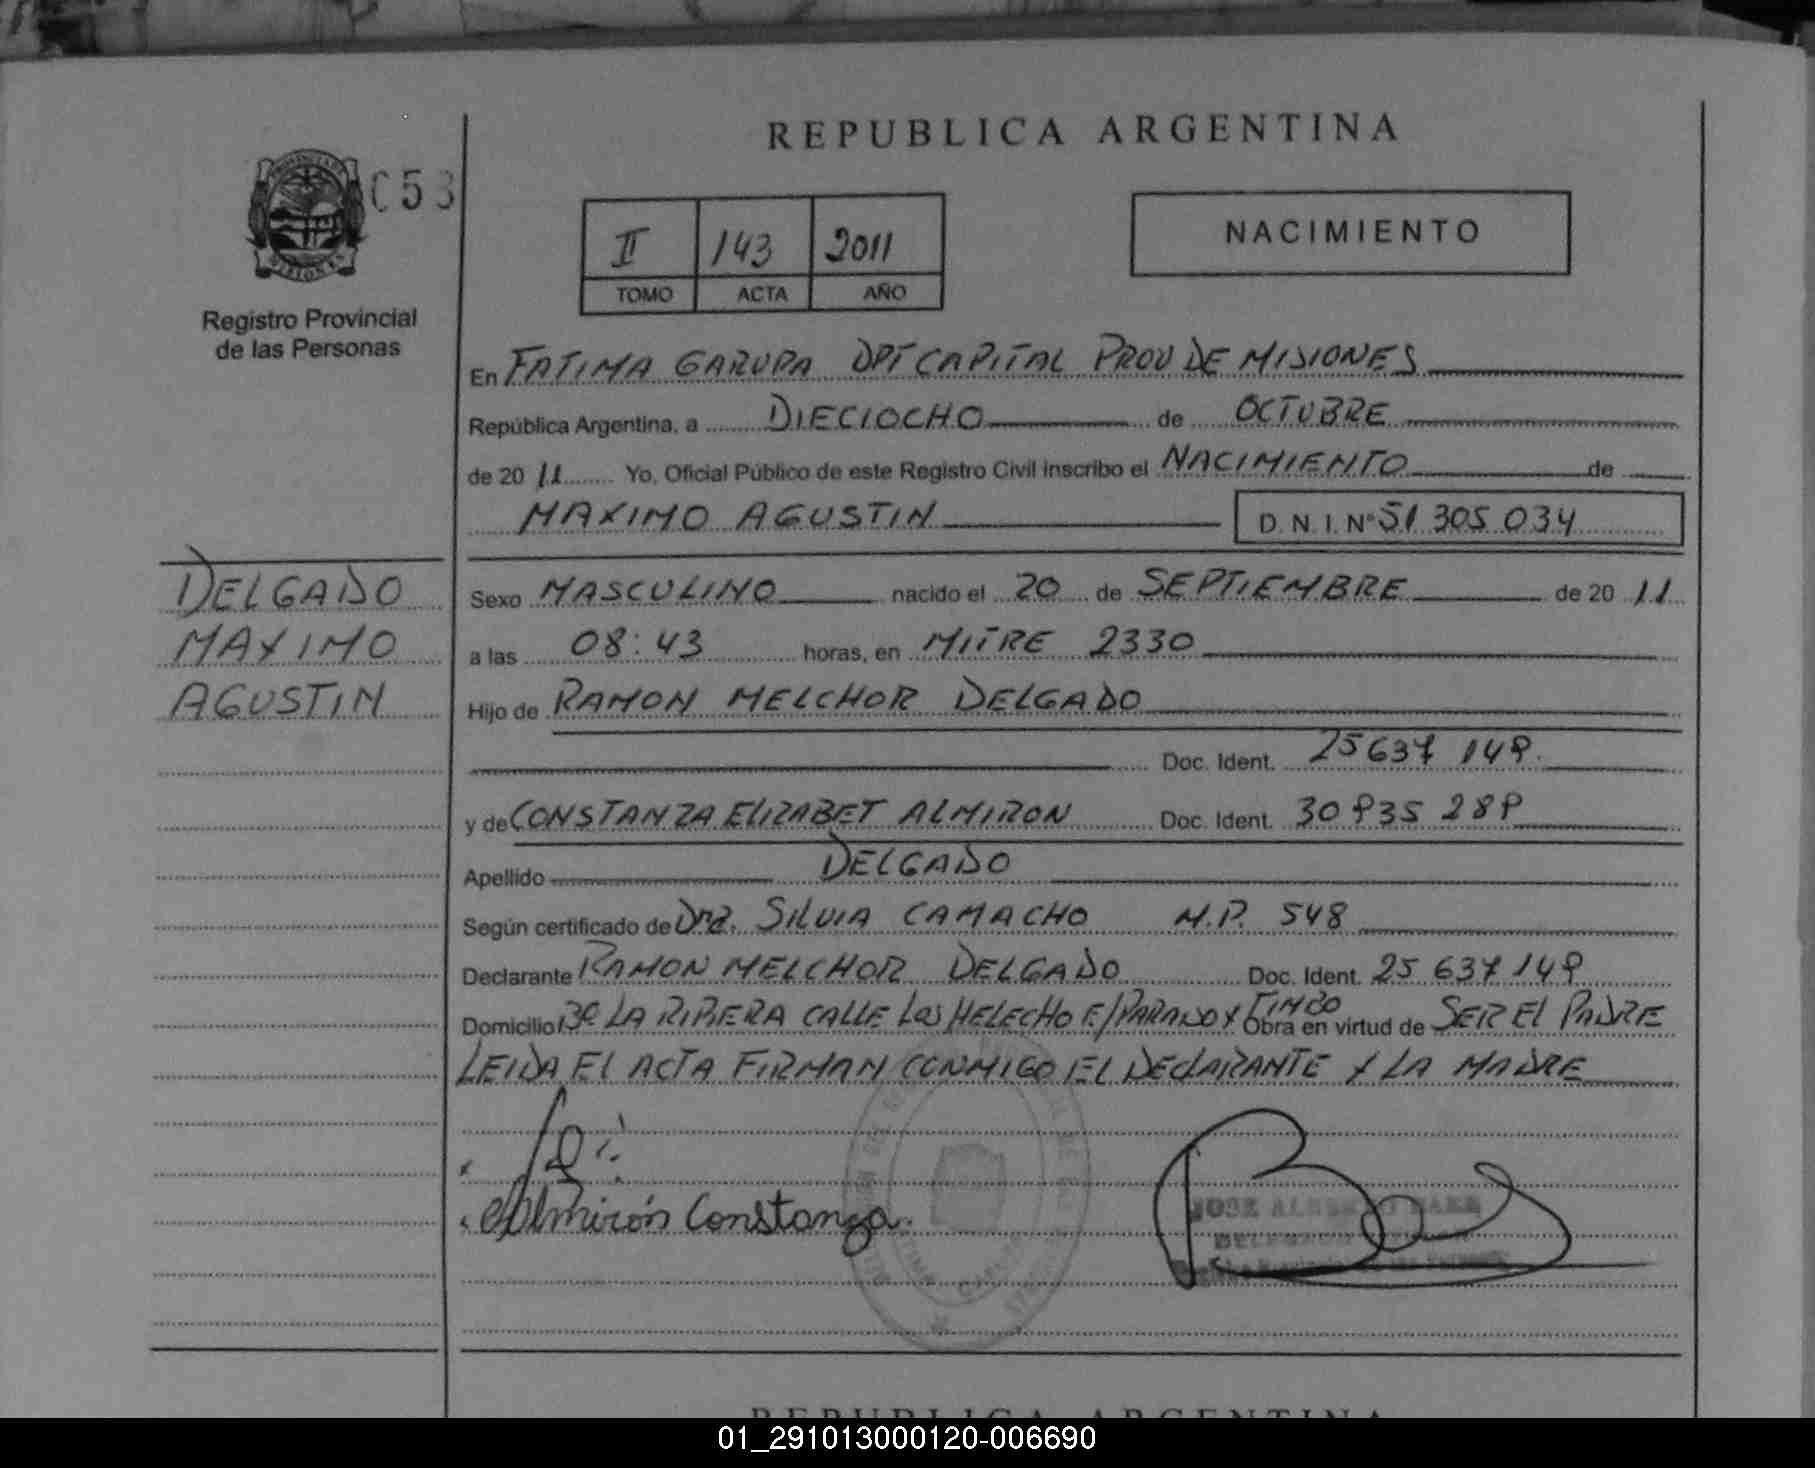 REPUBLICA ARGENTINA
C53
II 143 2011
TOMO ACTA AÑO
NACIMIENTO
Registro Provincial
de las Personas
En FATIMA GARUPA DPT CAPITAL PROV DE MISIONES
República Argentina, a DIECIOCHO de OCTUBRE
de 20 11 Yo, Oficial Público de este Registro Civil inscribo el NACIMIENTO de
MAXIMO AGUSTIN D. N. I. Nº 51 305 034
DELGADO
MAXIMO
AGUSTIN
Sexo MASCULINO nacido el 20 de SEPTIEMBRE de 20 11
a las 08:43 horas, en MITRE 2330
Hijo de RAMON MELCHOR DELGADO
Doc. Ident. 25 637 149
y de CONSTANZA ELIZABET ALMIRON Doc. Ident. 30 935 289
Apellido DELGADO
Según certificado de Dra. SILVIA CAMACHO M.P. 548
Declarante RAMON MELCHOR DELGADO Doc. Ident. 25 637 149
Domicilio Bº LA RIBERA CALLE LOS HELECHO E/ Y TIMBO Obra en virtud de SER El PADRE
LEIDA El ACTA FIRMAN CONMIGO EL DECLARANTE Y LA MADRE
Almirón Constanza
REPUBLICA ARGENTINA
01_291013000120-006690